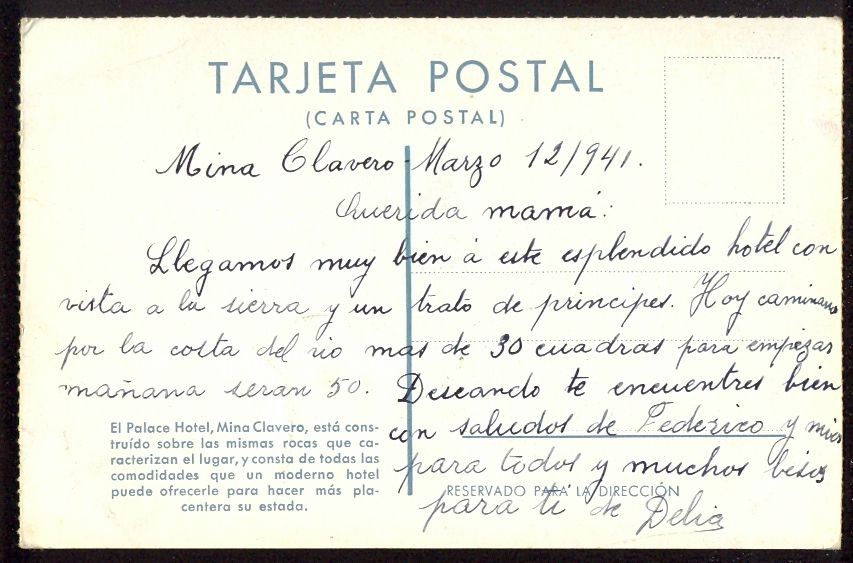 TARJETA POSTAL
(CARTA POSTAL)
Mina Clavero - Marzo 12/941.
Querida mamá:
Llegamos muy bien á este esplendido hotel con
vista a la sierra y un trato de principes. Hoy caminamos
por la costa del rio mas de 30 cuadras para empezar
mañana seran 50. Deseando te encuentres bien
con saludos de Federico y mios
para todos y muchos besos
para ti de Delia
El Palace Hotel, Mina Clavero, está cons-
truído sobre las mismas rocas que ca-
racterizan el lugar, y consta de todas las
comodidades que un moderno hotel
puede ofrecerle para hacer más pla-
centera su estada.
RESERVADO PARA LA DIRECCIÓN